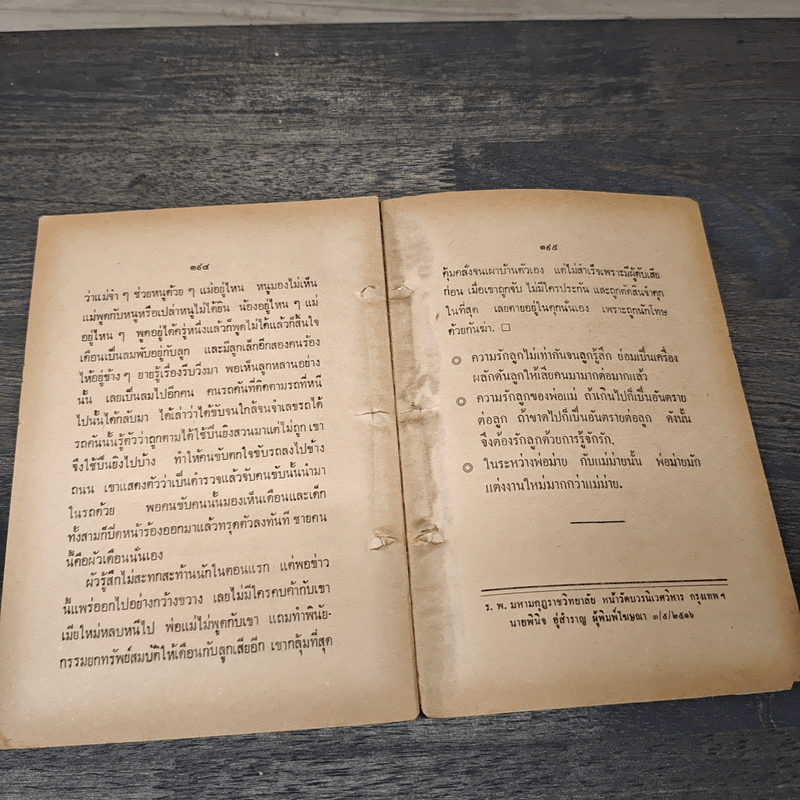 ๑๙๔
ว่าแม่จ๋า ๆ ช่วยหนูด้วย ๆ แม่อยู่ไหน หนูมองไม่เห็น
แม่พูดกับหนูหรือเปล่าหนูไม่ได้ยิน น้องอยู่ไหน ๆ แม่
อยู่ไหน ๆ พูดอยู่ได้ครู่หนึ่งแล้วก็พูดไม่ได้แล้วก็สิ้นใจ
เดือนเป็นลมพับอยู่กับลูก และมีลูกเล็กอีกสองคนร้อง
ไห้อยู่ข้าง ๆ ยายรู้เรื่องรีบวิ่งมา พอเห็นลูกหลานอย่าง
นั้น เลยเป็นลมไปอีกคน คนรถคันที่ติดตามรถที่หนี
ไปนั้นได้กลับมา ได้เล่าว่าได้ขับจนใกล้จนจำเลขรถได้
รถคันนั้นรู้ตัวว่าถูกตามได้ใช้ปืนยิงสวนมาแต่ไม่ถูก เขา
จึงใช้ปืนยิงไปบ้าง ทำให้คนขับตกใจขับรถลงไปข้าง
ถนน เขาแสดงตัวว่าเป็นตำรวจแล้วจับคนขับนั้นนำมา
ในรถด้วย พอคนขับคนนั้นมองเห็นเดือนและเด็ก
ทั้งสามก็ปิดหน้าร้องออกมาแล้วทรุดตัวลงทันที ชายคน
นี้คือผัวเดือนนั่นเอง
ผัวรู้สึกไม่สะทกสะท้านนักในตอนแรก แต่พอข่าว
นี้แพร่ออกไปอย่างกว้างขวาง เลยไม่มีใครคบค้ากับเขา
เมียใหม่หลบหนีไป พ่อแม่ไม่พูดกับเขา แถมทำพินัย-
กรรมยกทรัพย์สมบัติให้เดือนกับลูกเสียอีก เขากลุ้มที่สุด
๑๙๕
คุ้มคลั่งจนเผาบ้านตัวเอง แต่ไม่สำเร็จเพราะมีผู้ดับเสีย
ก่อน เมื่อเขาถูกจับ ไม่มีใครประกัน และถูกตัดสินจำคุก
ในที่สุด เลยตายอยู่ในคุกนั่นเอง เพราะถูกนักโทษ
ด้วยกันฆ่า. □
◎ ความรักลูกไม่เท่ากันจนลูกรู้สึก ย่อมเป็นเครื่อง
ผลักดันลูกให้เสียคนมามากต่อมากแล้ว
◎ ความรักลูกของพ่อแม่ ถ้าเกินไปก็เป็นอันตราย
ต่อลูก ถ้าขาดไปก็เป็นอันตรายต่อลูก ดังนั้น
จึงต้องรักลูกด้วยการรู้จักรัก.
◎ ในระหว่างพ่อม่าย กับแม่ม่ายนั้น พ่อม่ายมัก
แต่งงานใหม่มากกว่าแม่ม่าย.
ร. พ. มหามกุฏราชวิทยาลัย หน้าวัดบวรนิเวศวิหาร กรุงเทพ ฯ
นายพินิจ อู่สำราญ ผู้พิมพ์โฆษณา ๓/๕/๒๕๑๖